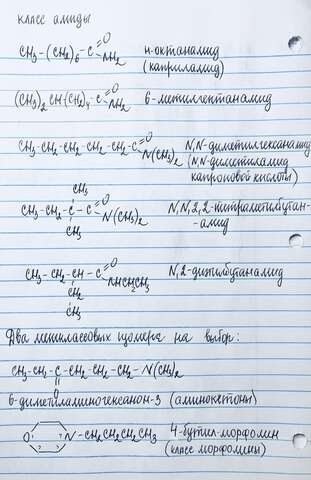 класс амиды
CH₃-(CH₂)₆-C(=O)NH₂ н-октанамид
(каприламид)
(CH₃)₂CH(CH₂)₄-C(=O)NH₂ 6-метилгептанамид
CH₃-CH₂-CH₂-CH₂-CH₂-C(=O)N(CH₃)₂ N,N-диметилгексанамид
(N,N-диметиламид
капроновой кислоты)
CH₃
CH₃-CH₂-C-C(=O)N(CH₃)₂ N,N,2,2-тетраметилбутан-
CH₃ -амид
CH₃-CH₂-CH-C(=O)NHCH₂CH₃ N,2-диэтилбутанамид
CH₂
CH₃
Два межклассовых изомера на выбор:
CH₃-CH₂-C-CH₂-CH₂-CH₂-N(CH₃)₂
O
6-диметиламиногексанон-3 (аминокетоны)
O N-CH₂CH₂CH₂CH₃ 4-бутил-морфолин
(класс морфолины)